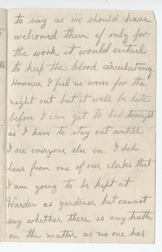 to say as we should have
welcomed them if only for
the work it would entail
to keep the blood circulating
However I feel no worse for the
night out but it will be late
before I can get to bed tonight
as I have to stay out until
I see everyone else in. I did
hear from one of our clerks that
I am going to be kept at
Harden as gardener but cannot
say whether there is any truth
on the matter as no one has